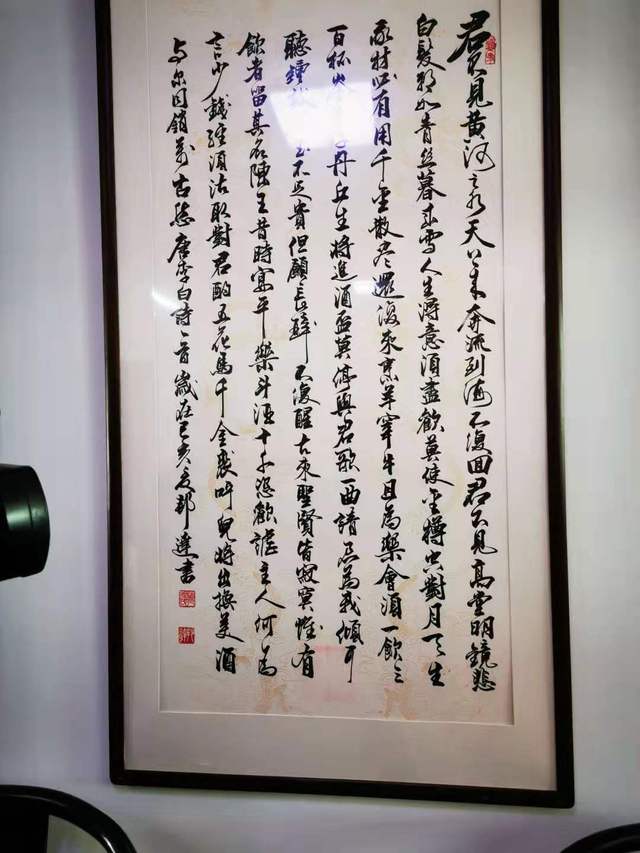 君不見黄河之水天上來奔流到海不復回君不見高堂明鏡悲
白髮朝如青丝暮成雪人生得意須盡歡莫使金樽空對月天生
我材必有用千金散盡還復來烹羊宰牛且為樂會須一飲三
百杯岑丹丘生將進酒盃莫停與君歌一曲請君為我傾耳
聽鐘玉不足貴但願長醉不復醒古來聖賢皆寂寞惟有
飲者留其名陳王昔時宴平樂斗酒十千恣歡謔主人何為
言少錢經須沽取對君酌五花馬千金裘呼兒將出換美酒
与尔同銷萬古愁唐李白詩一首歲在己亥夏邦達書